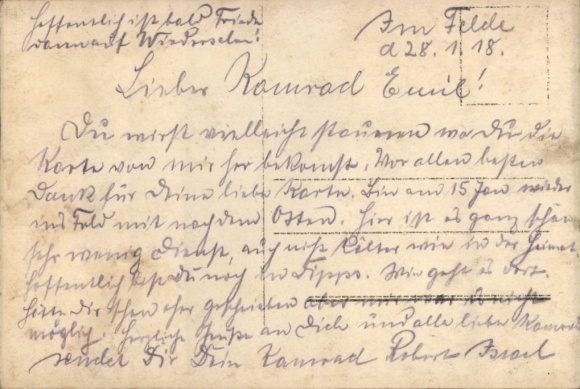 Hoffentlich ist bald Friede
dann auf Wiedersehn!
Im Felde
d 28. 1. 18.
Lieber Kamrad Emil!
Du wirst vielleicht staunen wo Du die
Karte von mir her bekomst. Vor allen besten
Dank für Deine liebe Karte. Bin am 15 Jan wieder
ins Feld mit nach dem Osten. Hier ist es ganz schön
sehr wenig Dienst, auch nicht kälter wie in der Heimat.
Hoffentlich bist Du noch in. Wie geht es dort.
Hätte Dir schon eher geschrieben aber mir war es nicht
möglich. Herzliche Grüße an Dich und alle liebe Kamrad
sendet Dir Dein Kamrad Robert Israel